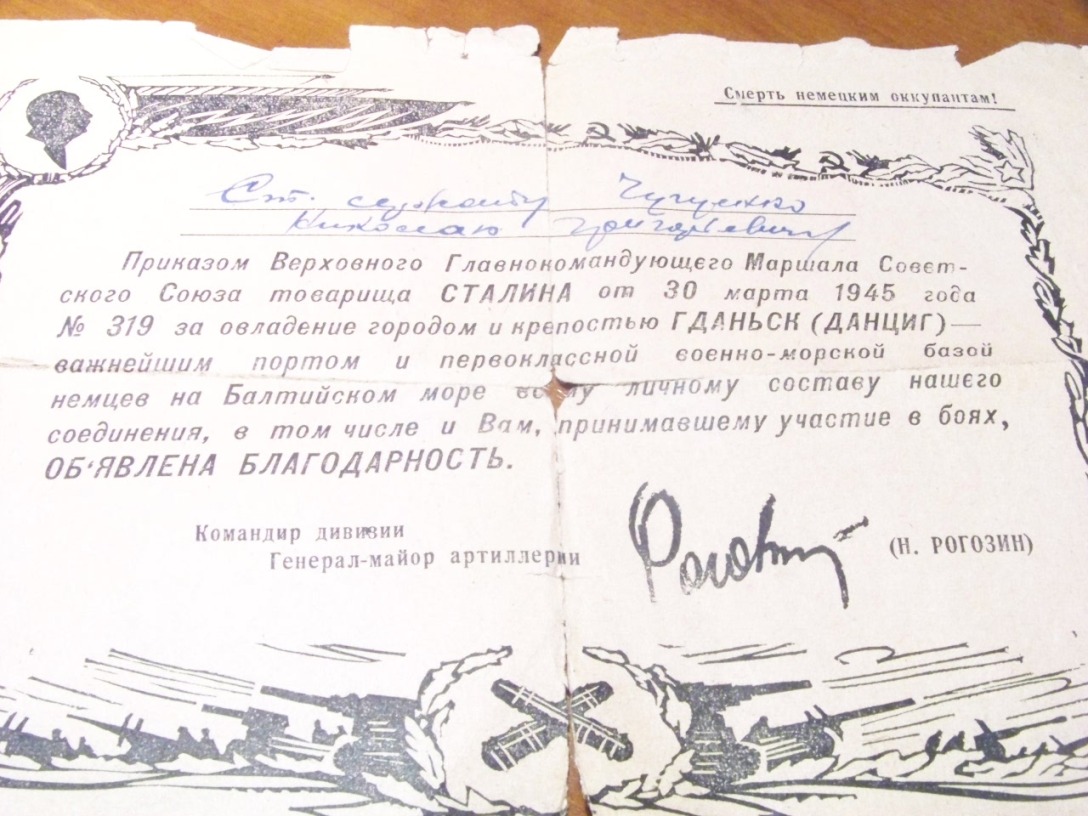 Смерть немецким оккупантам!
Ст. сержанту Чугунко
Николаю Григорьевичу
Приказом Верховного Главнокомандующего Маршала Совет-
ского Союза товарища СТАЛИНА от 30 марта 1945 года
№ 319 за овладение городом и крепостью ГДАНЬСК (ДАНЦИГ) —
важнейшим портом и первоклассной военно-морской базой
немцев на Балтийском море всему личному составу нашего
соединения, в том числе и Вам, принимавшему участие в боях,
ОБ'ЯВЛЕНА БЛАГОДАРНОСТЬ.
Командир дивизии
Генерал-майор артиллерии
(Н. РОГОЗИН)